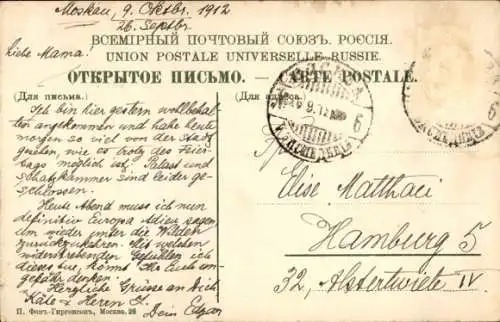 Moskau, 9. Oktbr. 1912
26. Septbr.
Liebe Mama!
ВСЕМІРНЫЙ ПОЧТОВЫЙ СОЮЗЪ. РОССІЯ.
UNION POSTALE UNIVERSELLE. RUSSIE.
ОТКРЫТОЕ ПИСЬМО. — CARTE POSTALE.
(Для письма.)
(Для адреса.)
Ich bin hier gestern wohlbehal-
ten angekommen und habe heute
morgen so viel von der Stadt
gesehen, wie es trotz des Feier-
tags möglich ist. Palast und
Schatzkammer sind leider ge-
schlossen.
Heute Abend muss ich nun
definitiv Europa Adieu sagen
um wieder unter die Wilden
zurückzukehren. Mit welchen
widerstrebenden Gefühlen ich
dieses tue, könnt Ihr Euch un-
gefähr denken.
Herzliche Grüsse an Dich
Käte & Herrn
Dein Edgar
Elise Matthaei
Hamburg 5
32, Alstertwiete IV
П. Фонъ-Гиргенсонъ, Москва. 26